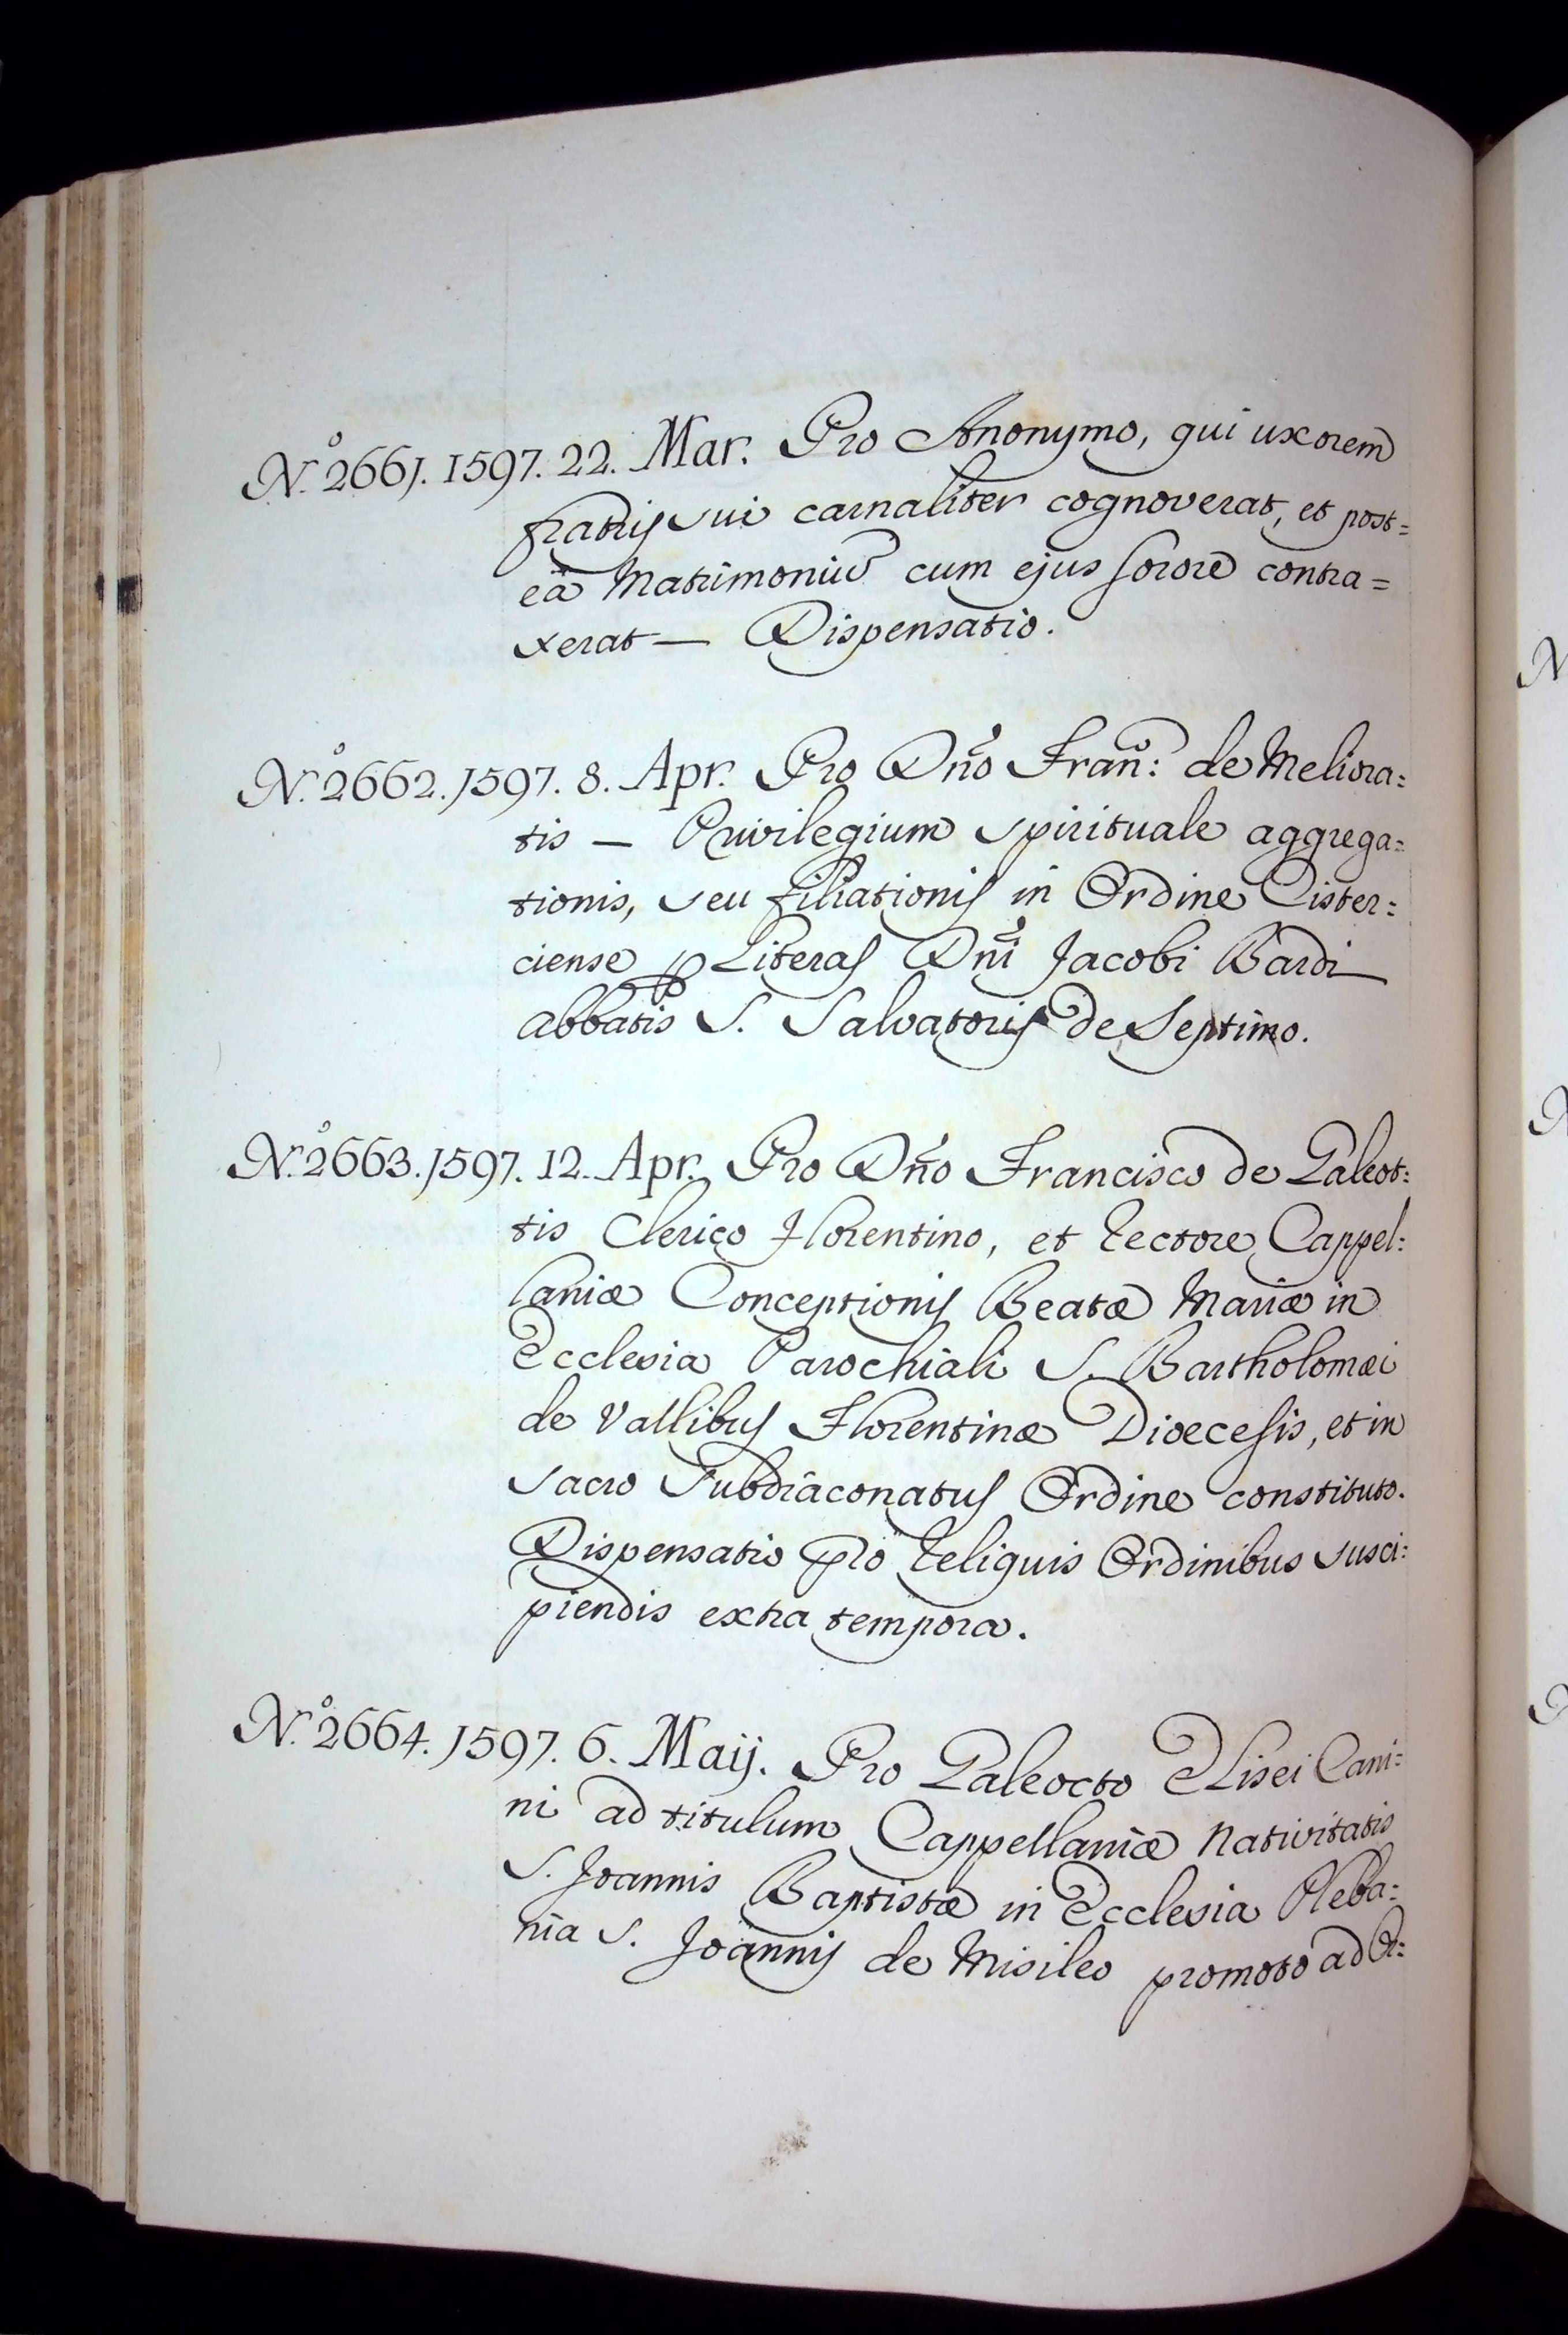 N.º 2661. 1597. 22. Mar. Pro Anonymo, qui uxorem
fratris sui carnaliter cognoverat, et post=
eà Matrimoniũ cum ejus sorore contra=
xerat — Dispensatio.
N.º 2662. 1597. 8. Apr. Pro Dño Frañ: de Meliora=
tis — Privilegium spirituale aggrega=
tionis, seu filiationis in Ordine Cister=
ciense ꝑ Literas Dñi Jacobi Bardi
Abbatis S. Salvatoris de Septimo.
N.º 2663. 1597. 12. Apr. Pro Dño Francisco de Galeot=
tis Clerico Florentino, et Rectore Cappel=
laniæ Conceptionis Beatæ Mariæ in
Ecclesia Parochiali S. Bartholomæi
de Vallibus Florentinæ Diœcesis, et in
sacro Subdiaconatus Ordine constituto.
Dispensatio pro Reliquis Ordinibus susci=
piendis extra tempora.
N.º 2664. 1597. 6. Maij. Pro Galeocto Elisei Cani=
ni ad titulum Cappellaniæ Nativitatis
S. Joannis Baptistæ in Ecclesia Pleba=
nia S. Joannis de Misileo promoto ad Or=
N